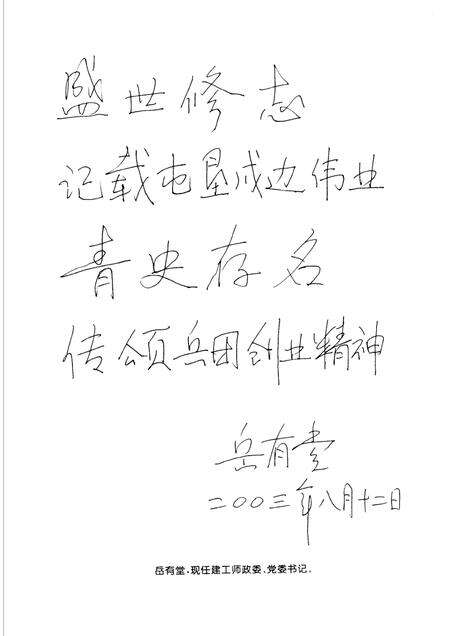 盛世修志
记载屯垦戍边伟业
青史存名
传颂兵团创业精神
岳有堂
二〇〇三年八月十二日
岳有堂,现任建工师政委、党委书记。